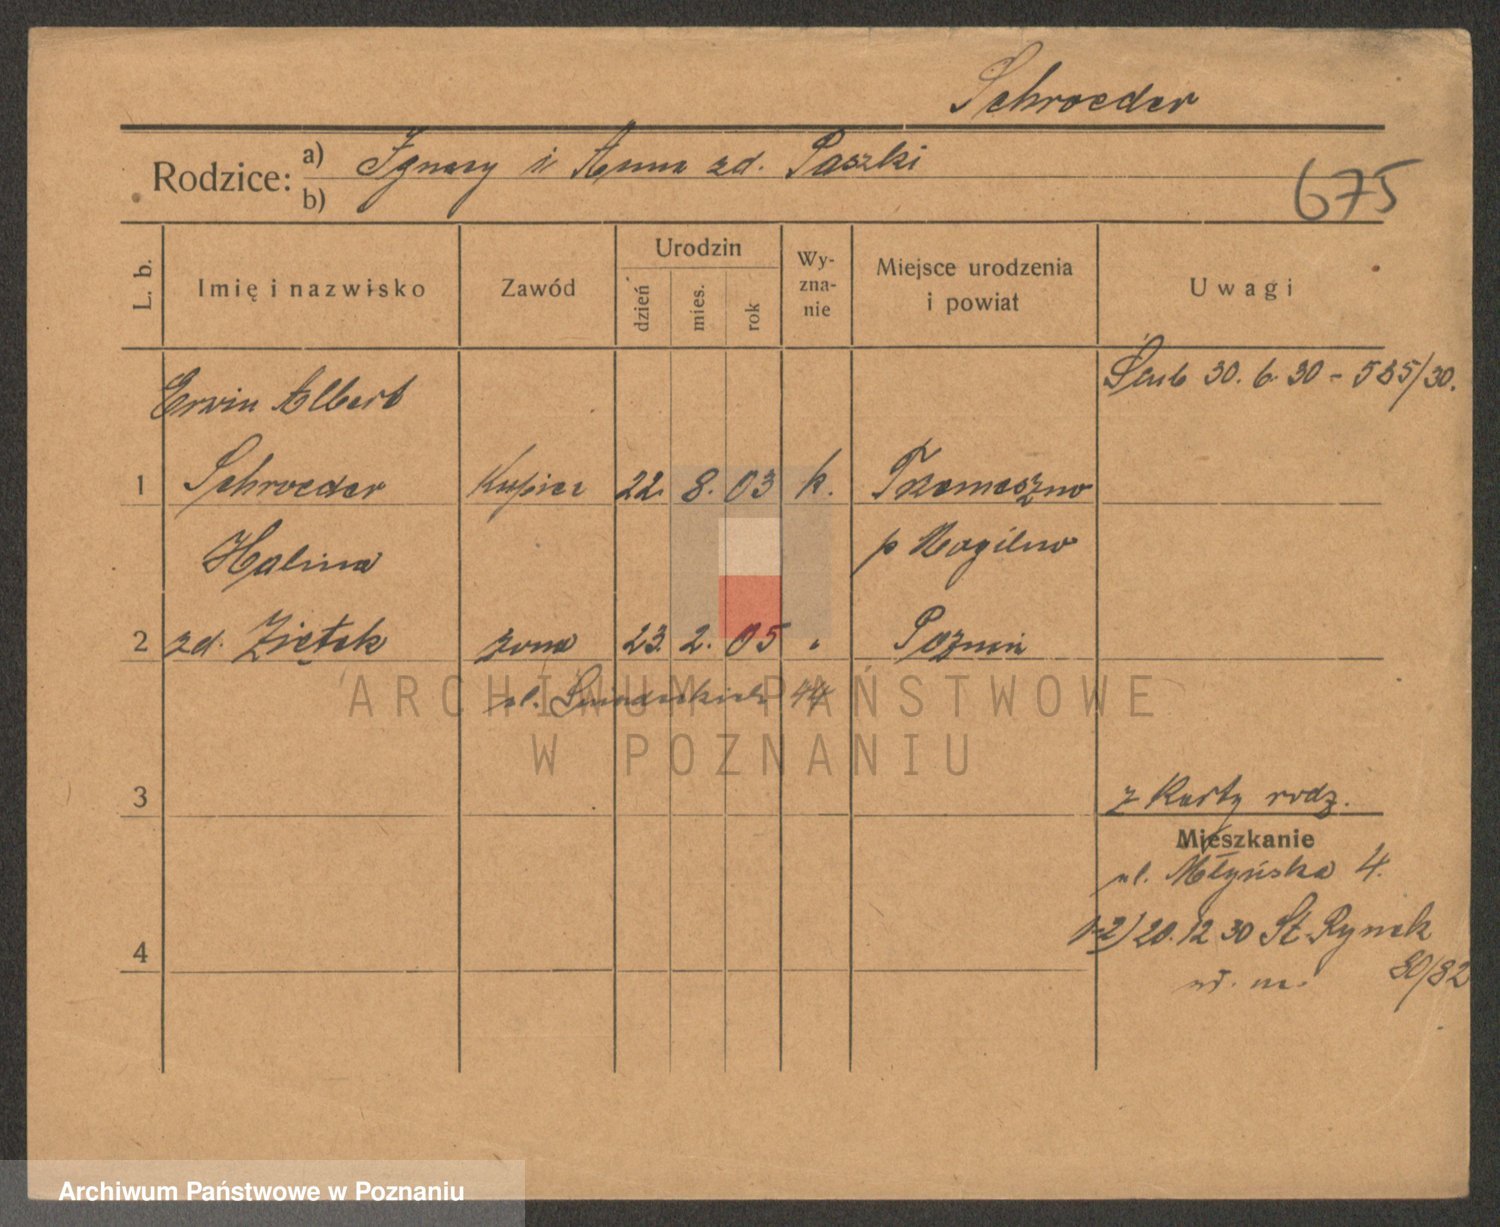 Schroeder
Rodzice: a) Ignacy i Anna zd. Paszki
b)
675
L. b.
Imię i nazwisko
Zawód
Urodzin
dzień
mies.
rok
Wy-
zna-
nie
Miejsce urodzenia
i powiat
Uwagi
Erwin Albert
Ślub 30. 6. 30 - 585/30.
1 Schroeder kupiec 22. 8. 03 k. Trzemeszno
Halina p Mogilno
2 zd. Ziętek żona 23. 2. 05 " Poznań
ul. Śniadeckich 44
ARCHIWUM PAŃSTWOWE
W POZNANIU
3
z Karty rodz.
Mieszkanie
ul. Młyńska 4.
1-2) 20. 12 30 St. Rynek
4
80/82
Archiwum Państwowe w Poznaniu